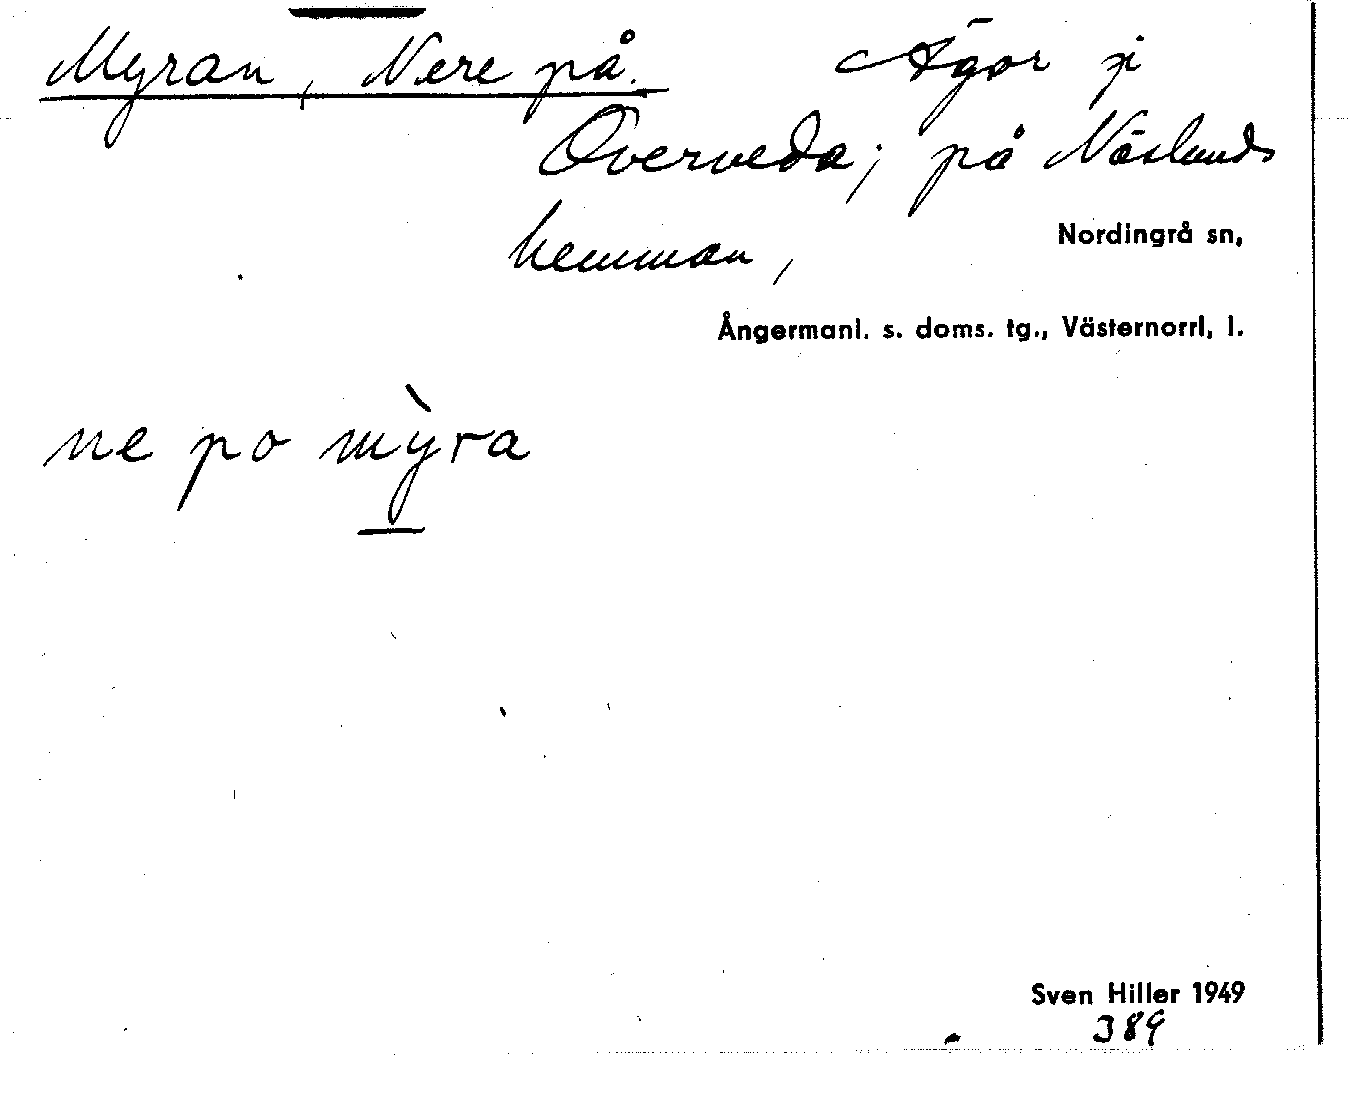 Myran, Nere på. Ägor i
Överveda; på Näslunds
hemman,
Nordingrå sn,
Ångermanl. s. doms. tg., Västernorrl. l.
ne po mỳra
Sven Hiller 1949
389